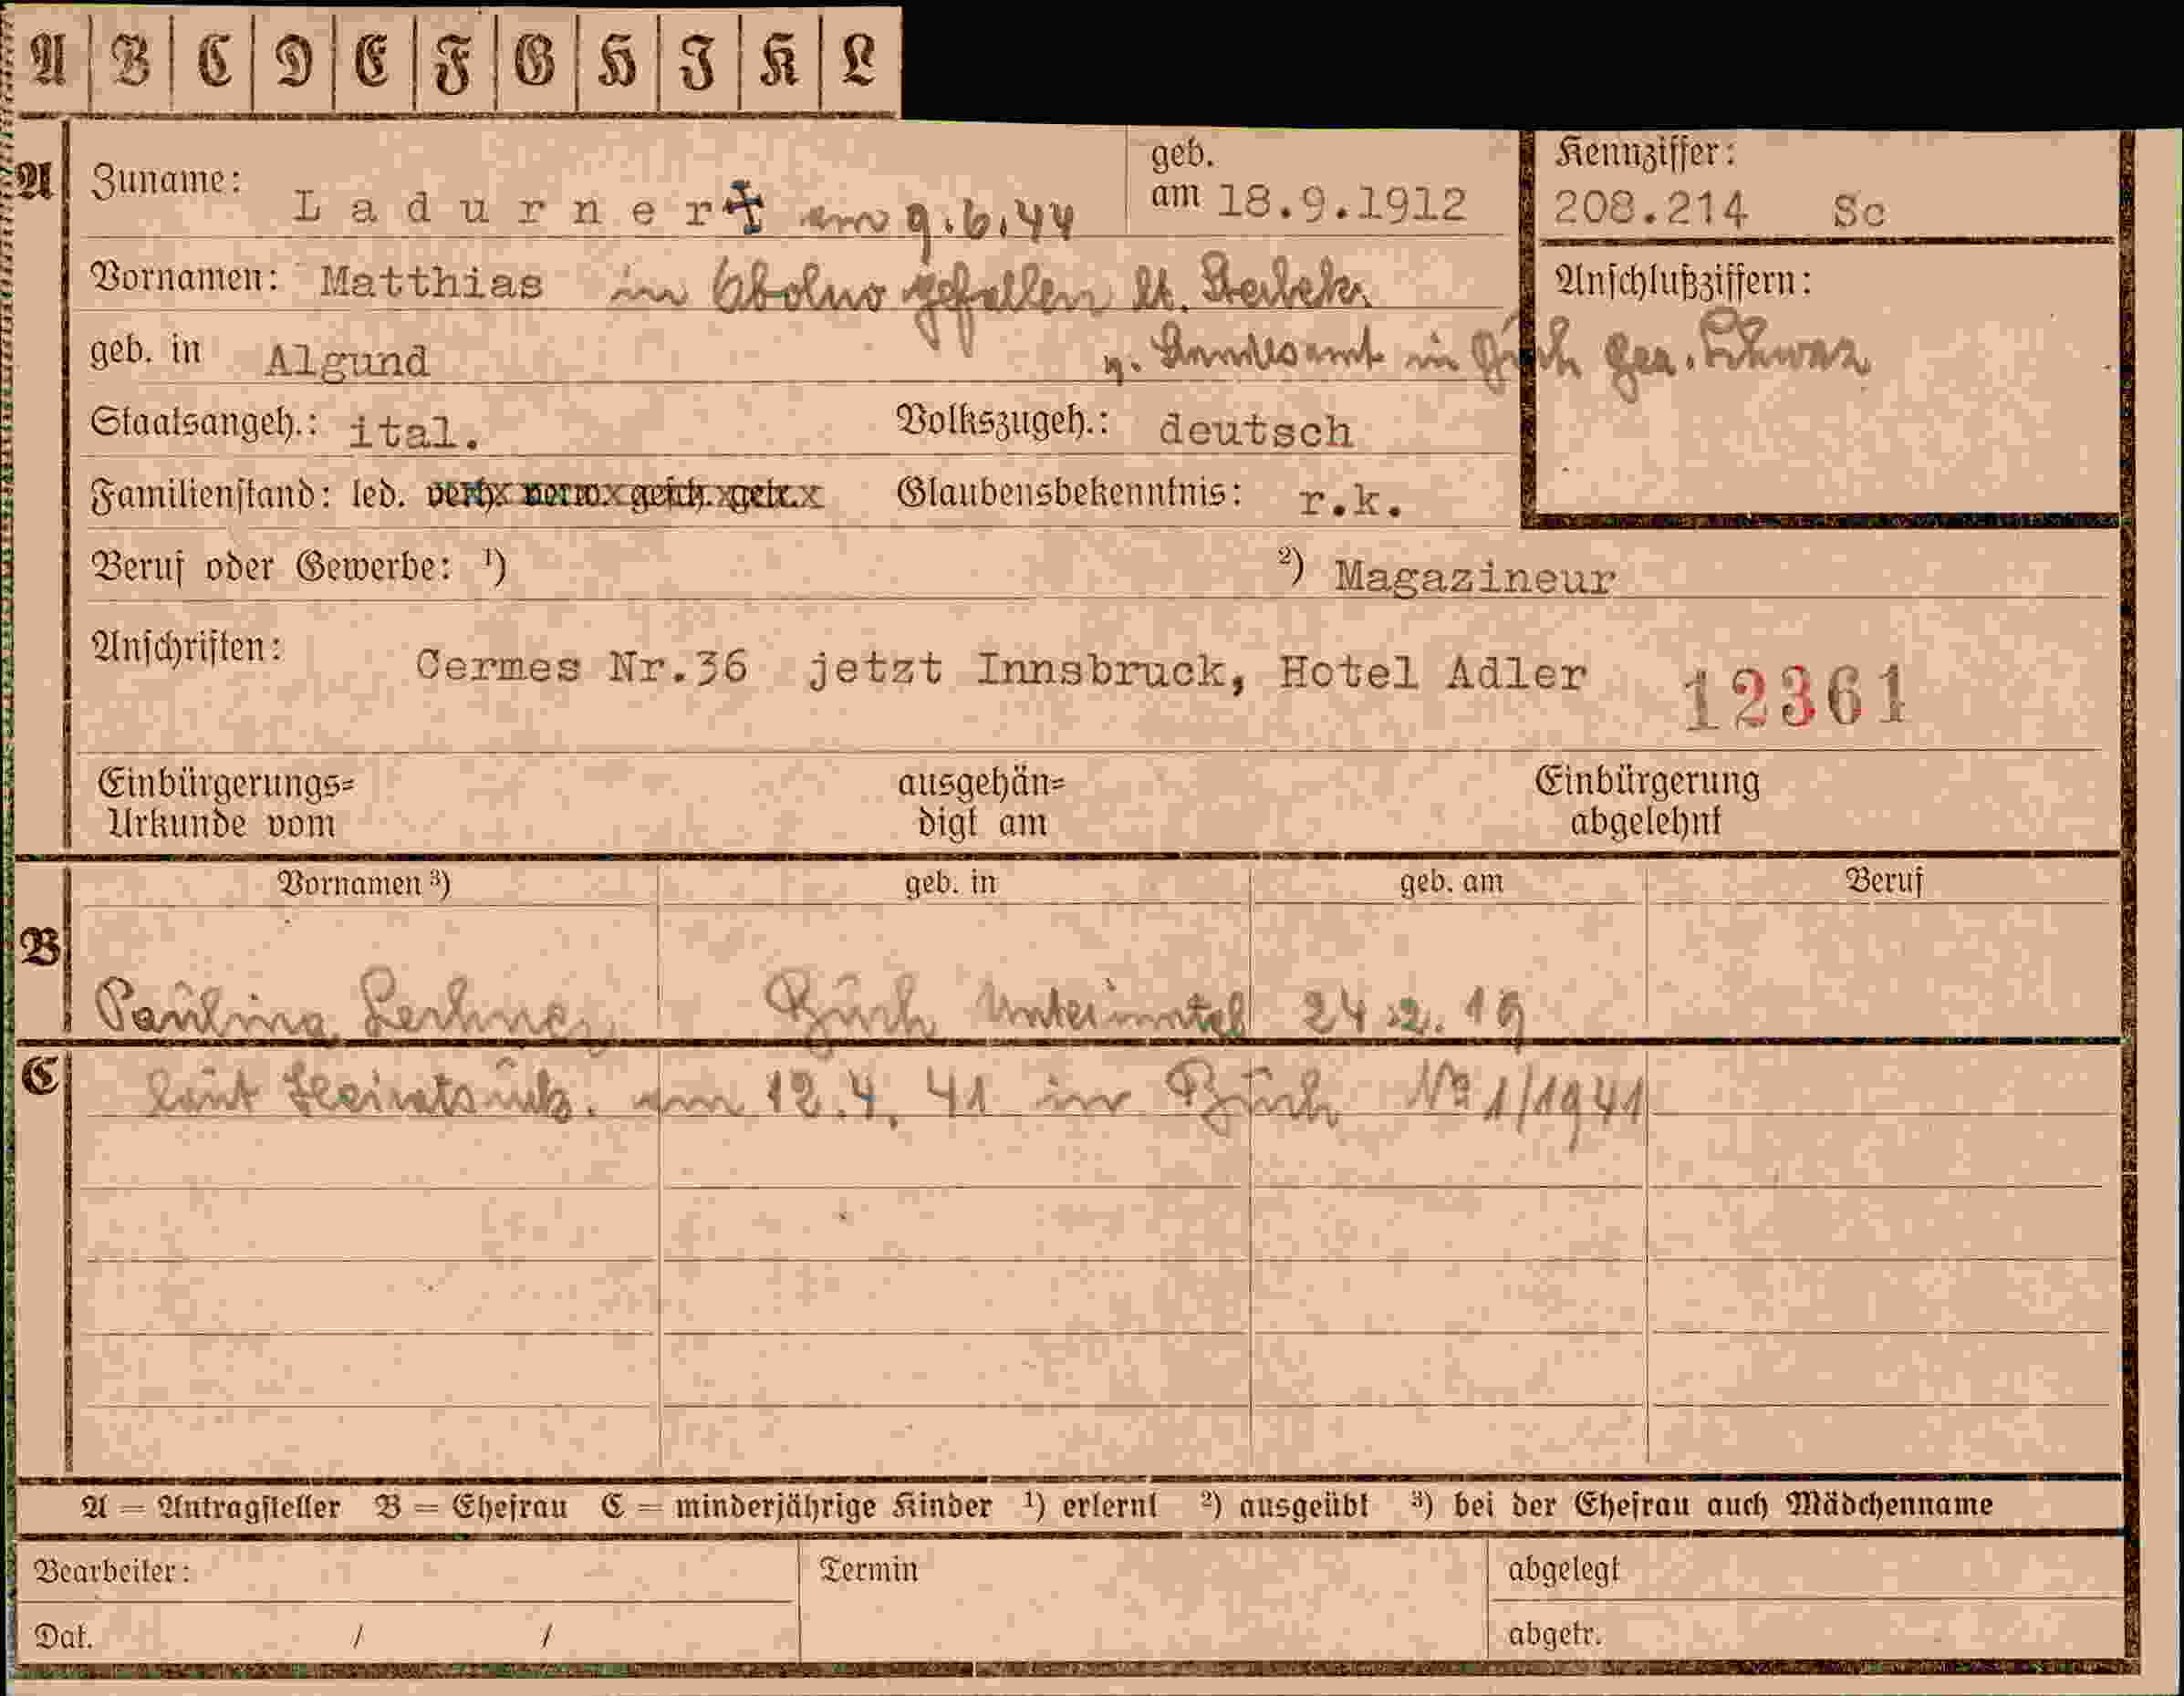 A B C D E F G H I K L
A Zuname: Ladurner ✠ am 9.6.44 geb. am 18.9.1912 Kennziffer: 208.214 Sc
Vornamen: Matthias in gefallen lt. Sterbek. Anschlußziffern:
geb. in Algund v. Standesamt in Buch Schwaz
Staatsangeh.: ital. Volkszugeh.: deutsch
Familienstand: led. verh. verw. gesch. getr. Glaubensbekenntnis: r.k.
Beruf oder Gewerbe: ¹) ²) Magazineur
Anschriften: Cermes Nr.36 jetzt Innsbruck, Hotel Adler 12361
Einbürgerungs= ausgehän= Einbürgerung
Urkunde vom digt am abgelehnt
Vornamen ³) geb. in geb. am Beruf
B
Paulina Lechner Buch Unterinntal 24.2.19
C laut Heiratsurk. am 12.4.41 in Buch No 1/1941
A = Antragsteller B = Ehefrau C = minderjährige Kinder ¹) erlernt ²) ausgeübt ³) bei der Ehefrau auch Mädchenname
Bearbeiter: Termin abgelegt
Dat. / / abgetr.